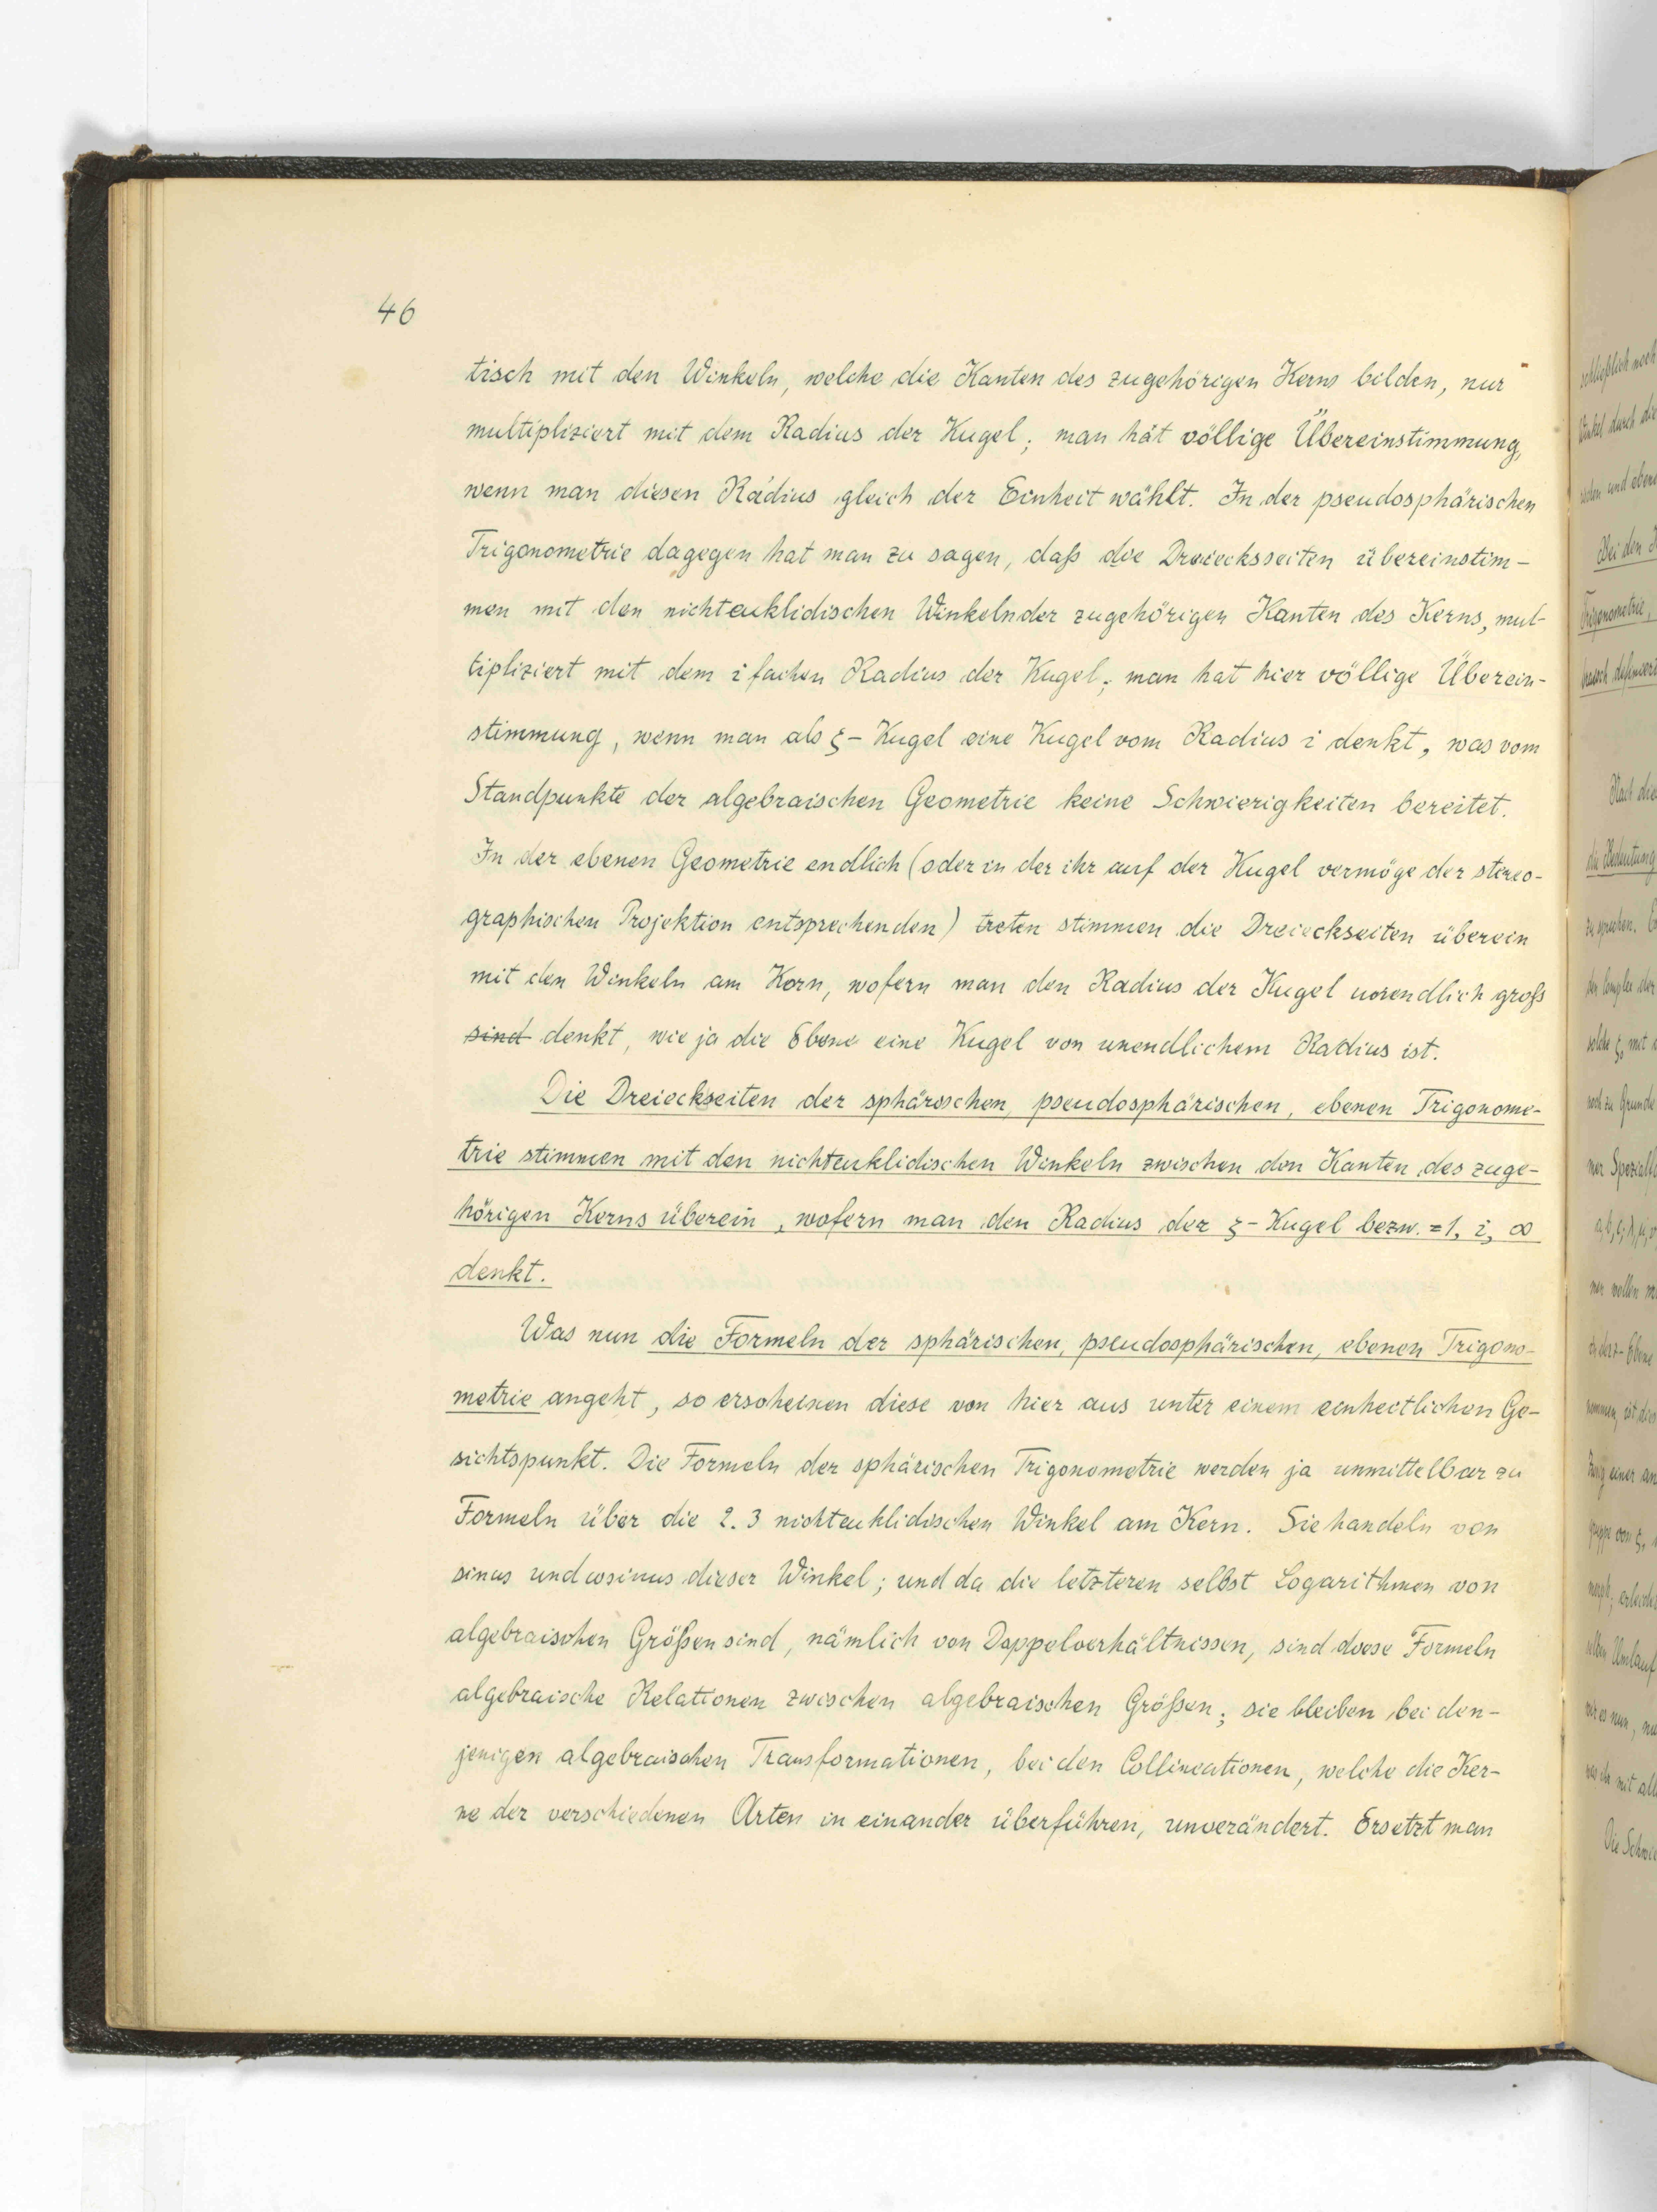 46
tisch mit den Winkeln, welche die Kanten des zugehörigen Kerns bilden, nur
multipliziert mit dem Radius der Kugel; man hat völlige Übereinstimmung,
wenn man diesen Radius gleich der Einheit wählt. In der pseudosphärischen
Trigonometrie dagegen hat man zu sagen, daß die Dreiecksseiten übereinstim-
men mit den nichteuklidischen Winkeln der zugehörigen Kanten des Kerns, mul-
tipliziert mit dem i fachen Radius der Kugel; man hat hier völlige Überein-
stimmung, wenn man als ξ-Kugel eine Kugel vom Radius i denkt, was vom
Standpunkte der algebraischen Geometrie keine Schwierigkeiten bereitet.
In der ebenen Geometrie endlich (oder in der ihr auf der Kugel vermöge der stereo-
graphischen Projektion entsprechenden) treten stimmen die Dreieckseiten überein
mit den Winkeln am Kern, wofern man den Radius der Kugel unendlich groß
sind denkt, wie ja die Ebene eine Kugel von unendlichem Radius ist.
Die Dreieckseiten der sphärischen, pseudosphärischen, ebenen Trigonome-
trie stimmen mit den nichteuklidischen Winkeln zwischen den Kanten des zuge-
hörigen Kerns überein, wofern man den Radius der ξ-Kugel bezw. = 1, i, ∞
denkt.
Was nun die Formeln der sphärischen, pseudosphärischen, ebenen Trigono-
metrie angeht, so erscheinen diese von hier aus unter einem einheitlichen Ge-
sichtspunkt. Die Formeln der sphärischen Trigonometrie werden ja unmittelbar zu
Formeln über die 2.3 nichteuklidischen Winkel am Kern. Sie handeln von
sinus und cosinus dieser Winkel; und da die letzteren selbst Logarithmen von
algebraischen Größen sind, nämlich von Doppelverhältnissen, sind diese Formeln
algebraische Relationen zwischen algebraischen Größen; sie bleiben bei den-
jenigen algebraischen Transformationen, bei den Collineationen, welche die Ker-
ne der verschiedenen Arten in einander überführen, unverändert. Ersetzt man